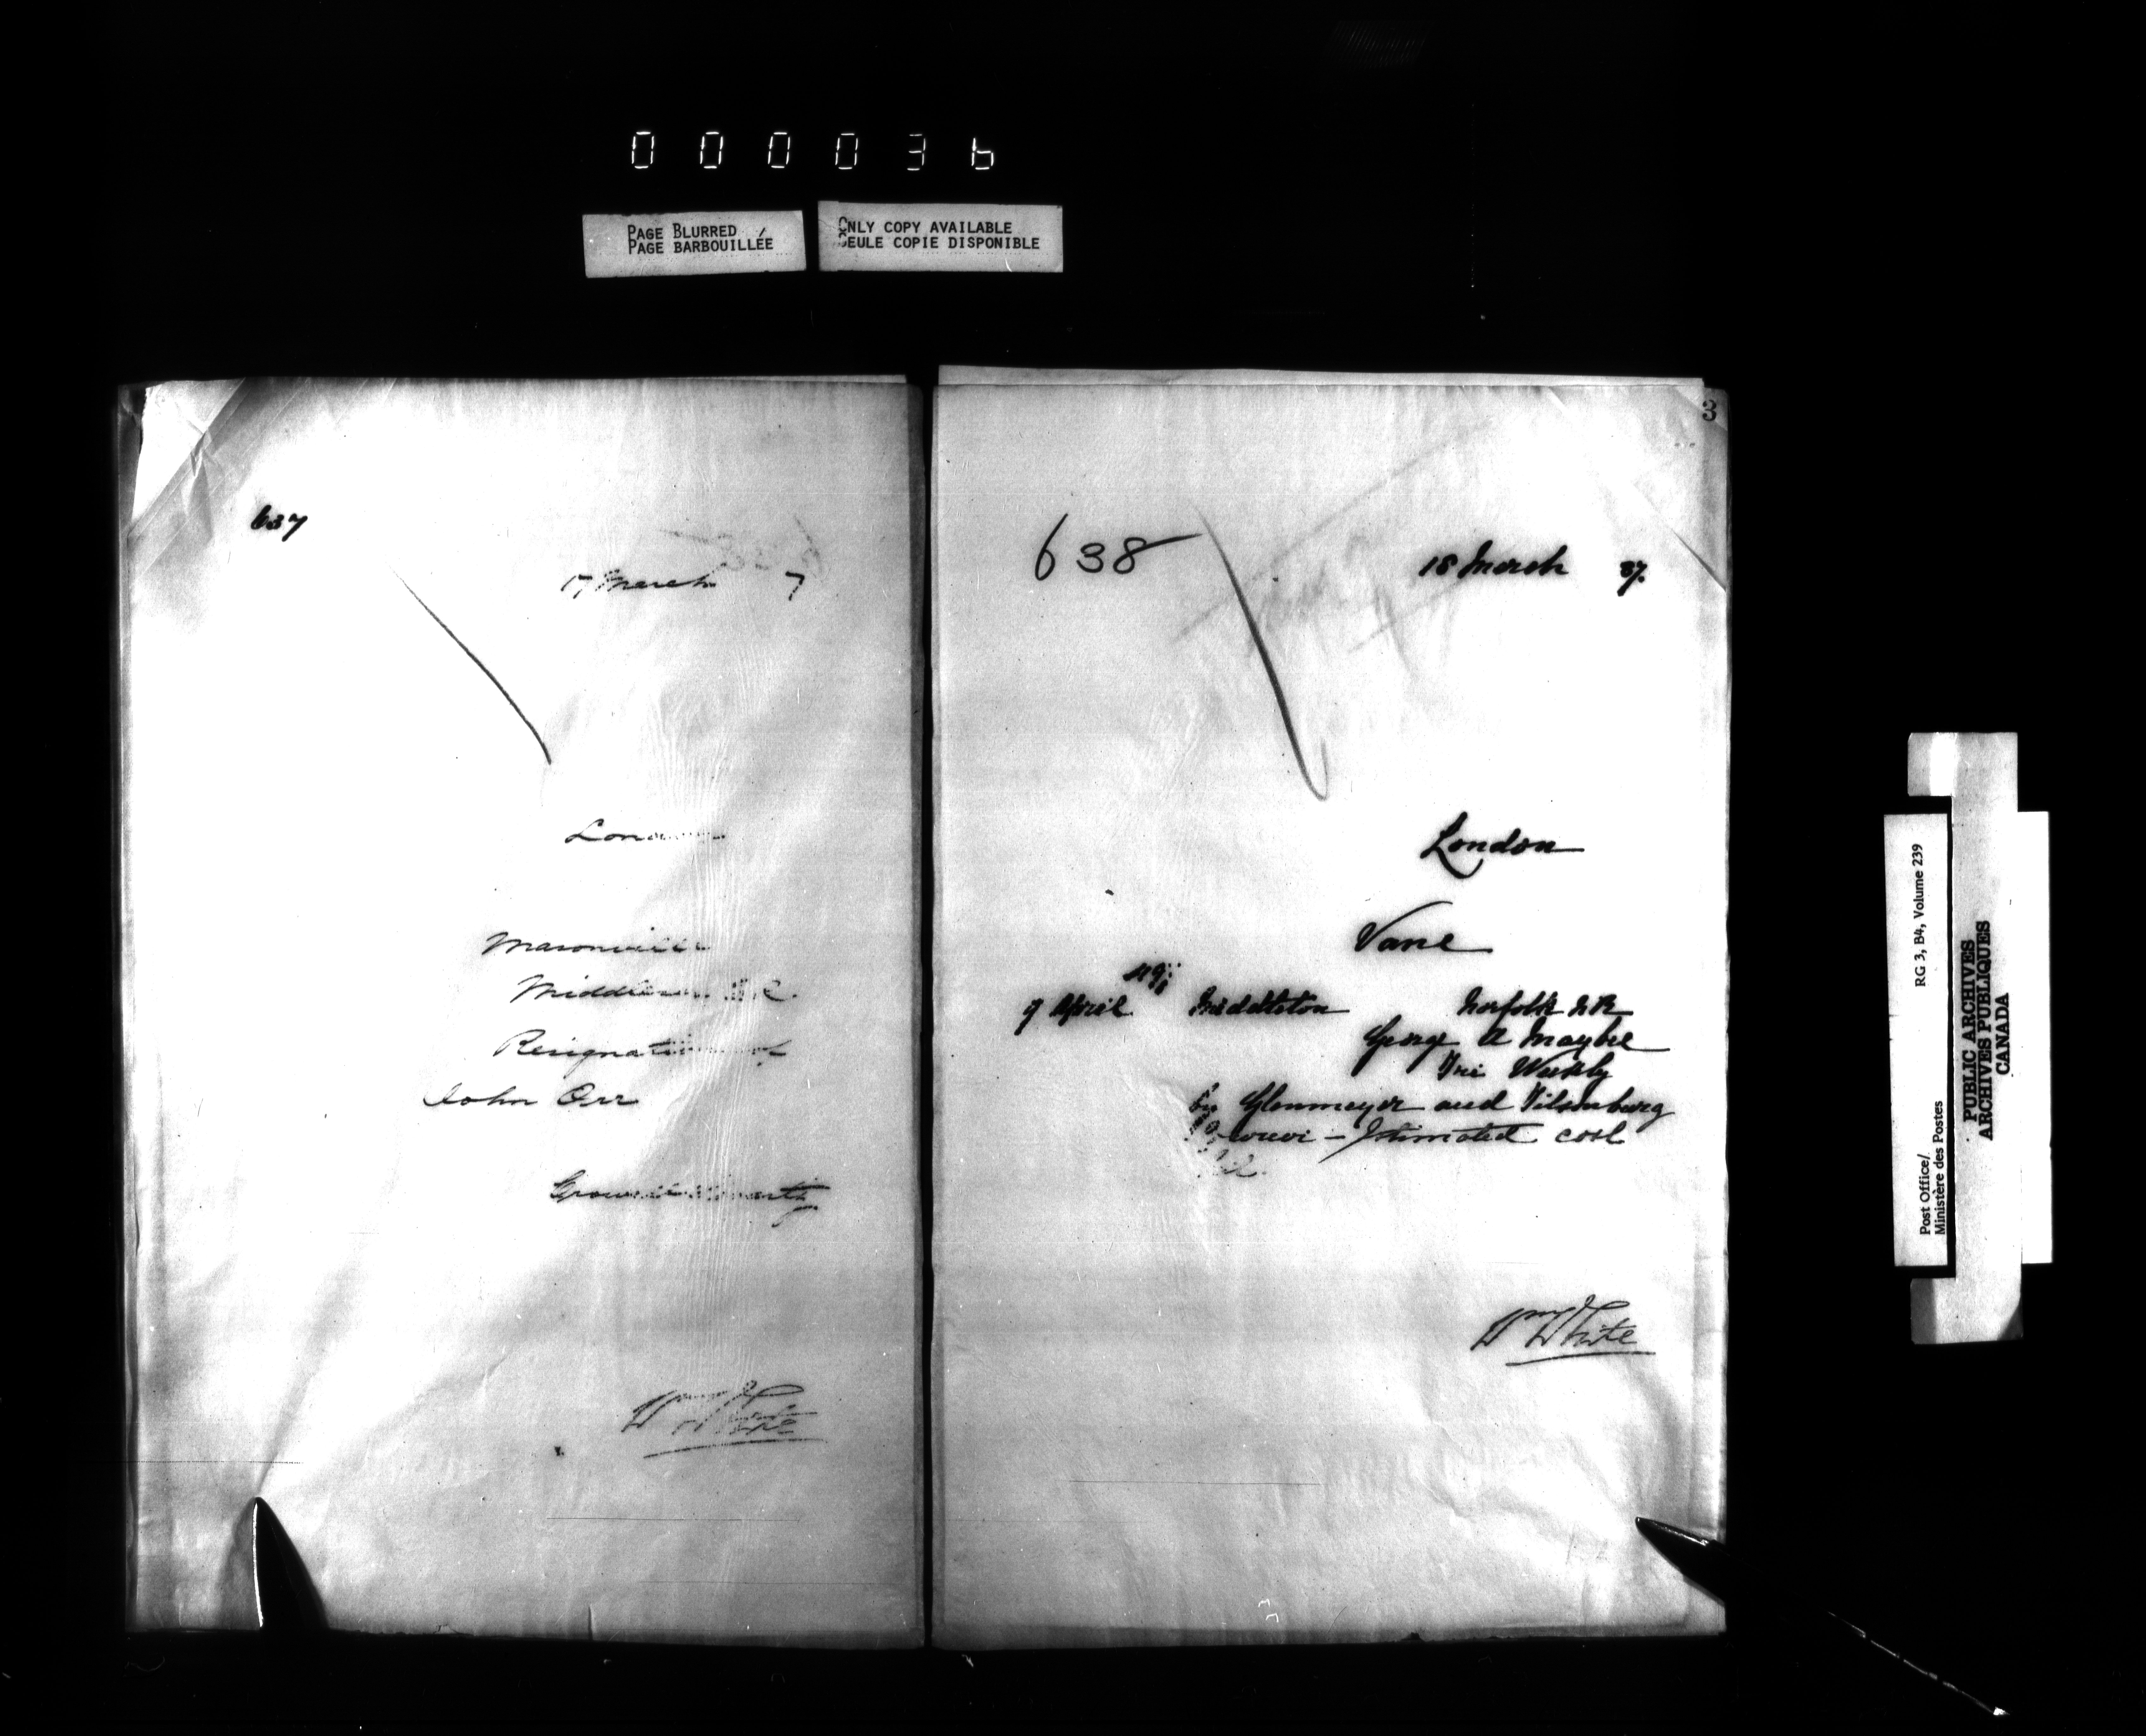 000036
PAGE BLURRED
PAGE BARBOUILLÉE
ONLY COPY AVAILABLE
SEULE COPIE DISPONIBLE
637
17 March 7
London
Masonville
Middlesex
Resignation of
John Orr
Wm White
3
638
18 March 87.
London
Vane
9 April Middleton Norfolk N R
George A Maybee
Tri Weekly
by Glenmeyer and Tilsonburg
Estimated cost
Wm White
Post Office/ RG 3, B4, Volume 239
Ministère des Postes
PUBLIC ARCHIVES
ARCHIVES PUBLIQUES
CANADA